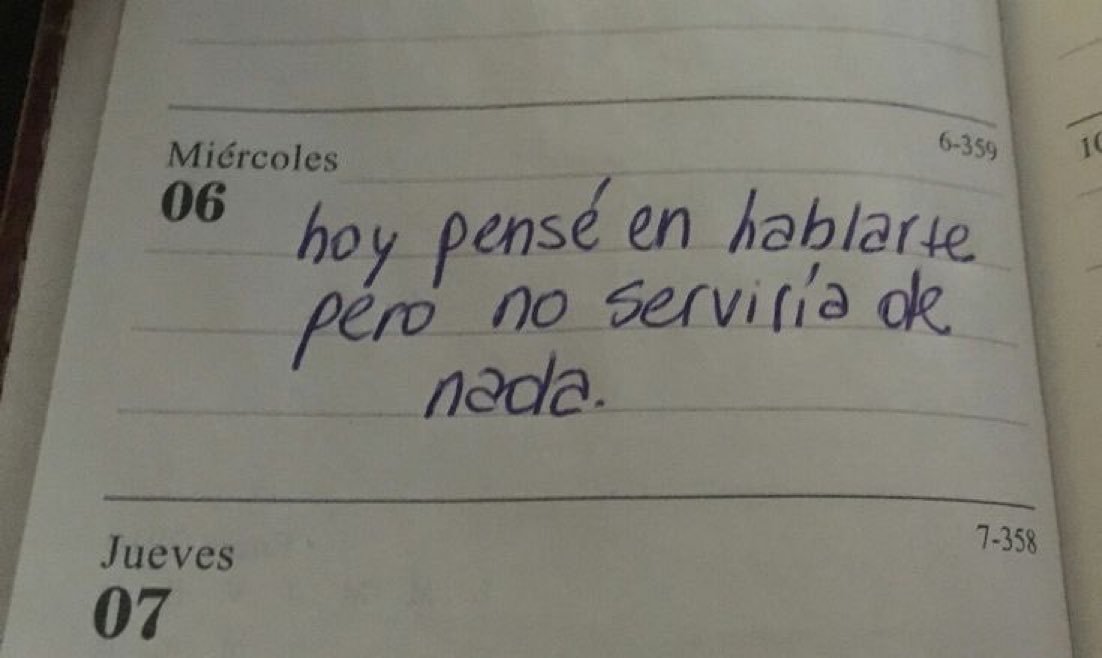 Miércoles
6-359
06
hoy pensé en hablarte
pero no serviría de
nada.
Jueves
7-358
07